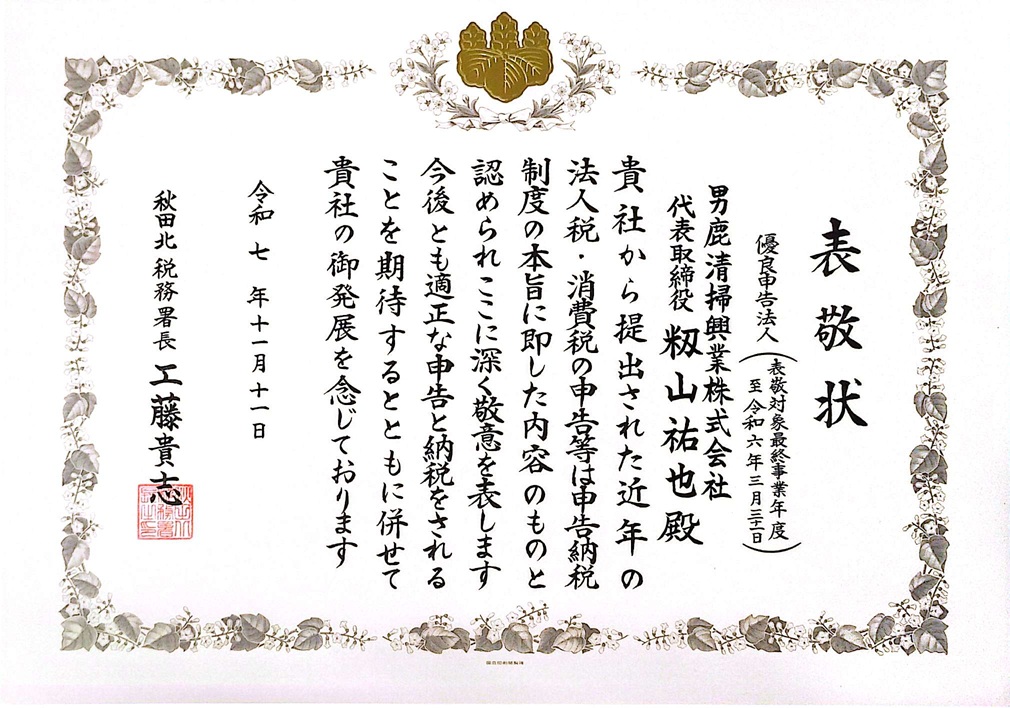 表敬状
優良申告法人
(表敬対象最終事業年度
至令和六年三月三十一日)
男鹿清掃興業株式会社
代表取締役 籾山祐也殿
貴社から提出された近年の
法人税・消費税の申告等は申告納税
制度の本旨に即した内容のものと
認められここに深く敬意を表します
今後とも適正な申告と納税をされる
ことを期待するとともに併せて
貴社の御発展を念じております
令和七年十一月十一日
秋田北税務署長 工藤貴志